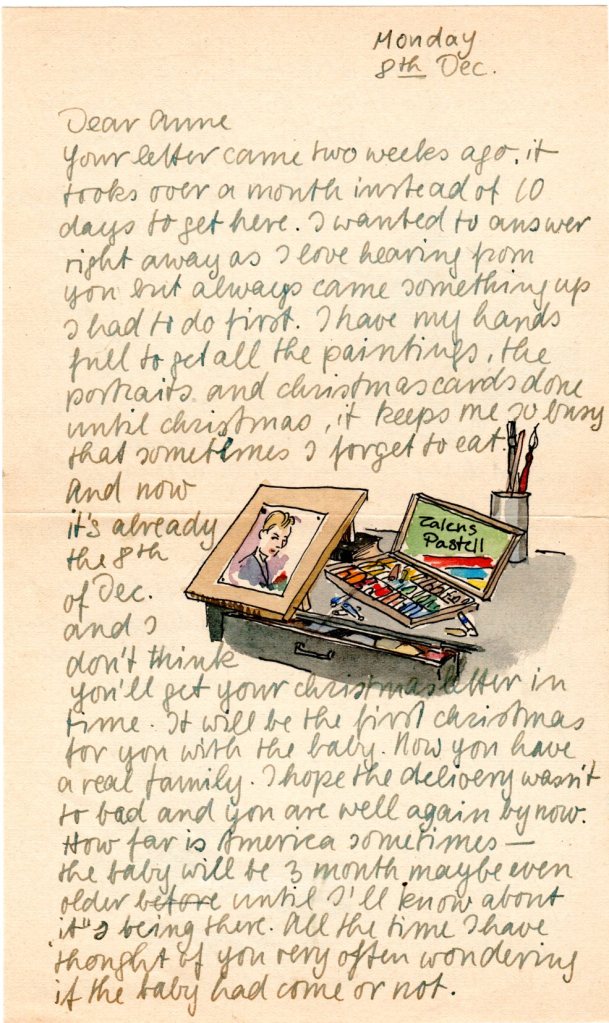 Monday
8th Dec.
Dear Anne
Your letter came two weeks ago, it
tooks over a month instead of 10
days to get here. I wanted to answer
right away as I love hearing from
you but always came something up
I had to do first. I have my hands
full to get all the paintings, the
portraits and christmascards done
until christmas, it keeps me so busy
that sometimes I forget to eat.
And now
it's already
the 8th
of Dec.
and I
don't think
you'll get your christmasletter in
time. It will be the first christmas
for you with the baby. Now you have
a real family. I hope the delivery wasn't
to bad and you are well again by now.
How far is America sometimes —
the baby will be 3 month maybe even
older before until I'll know about
it"s being there. All the time I have
thought of you very often wondering
if the baby had come or not.
Talens
Pastell